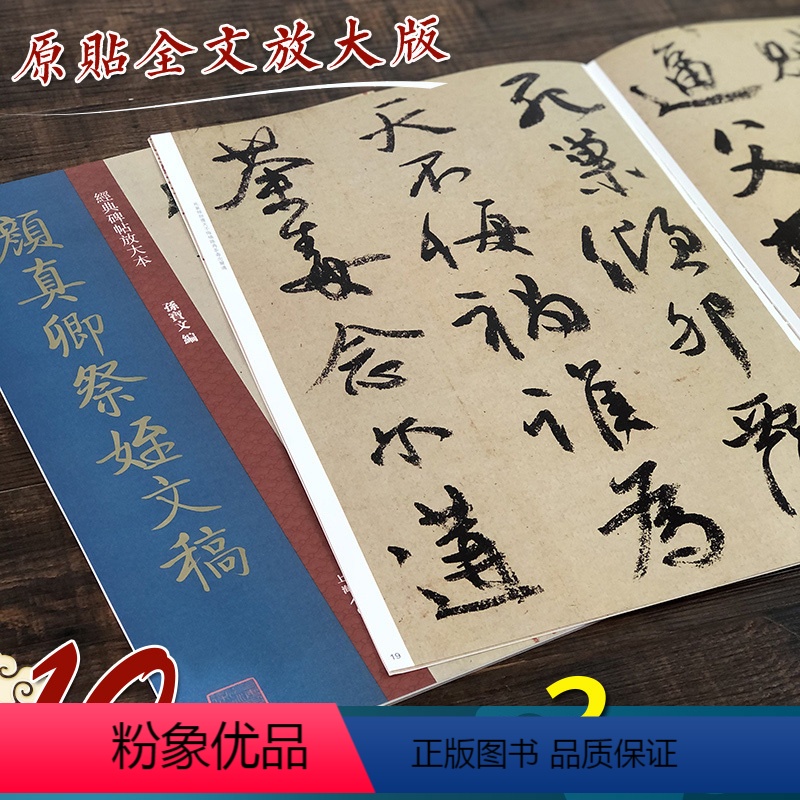 原貼全文放大版
逼父
死巢傾卵覆
天不悔禍誰為
荼毒念尓遘
19
經典碑帖放大本
孫寶文 編
顏真卿祭姪文稿
上海
10
2
粉象优品
正版图书 品质保证